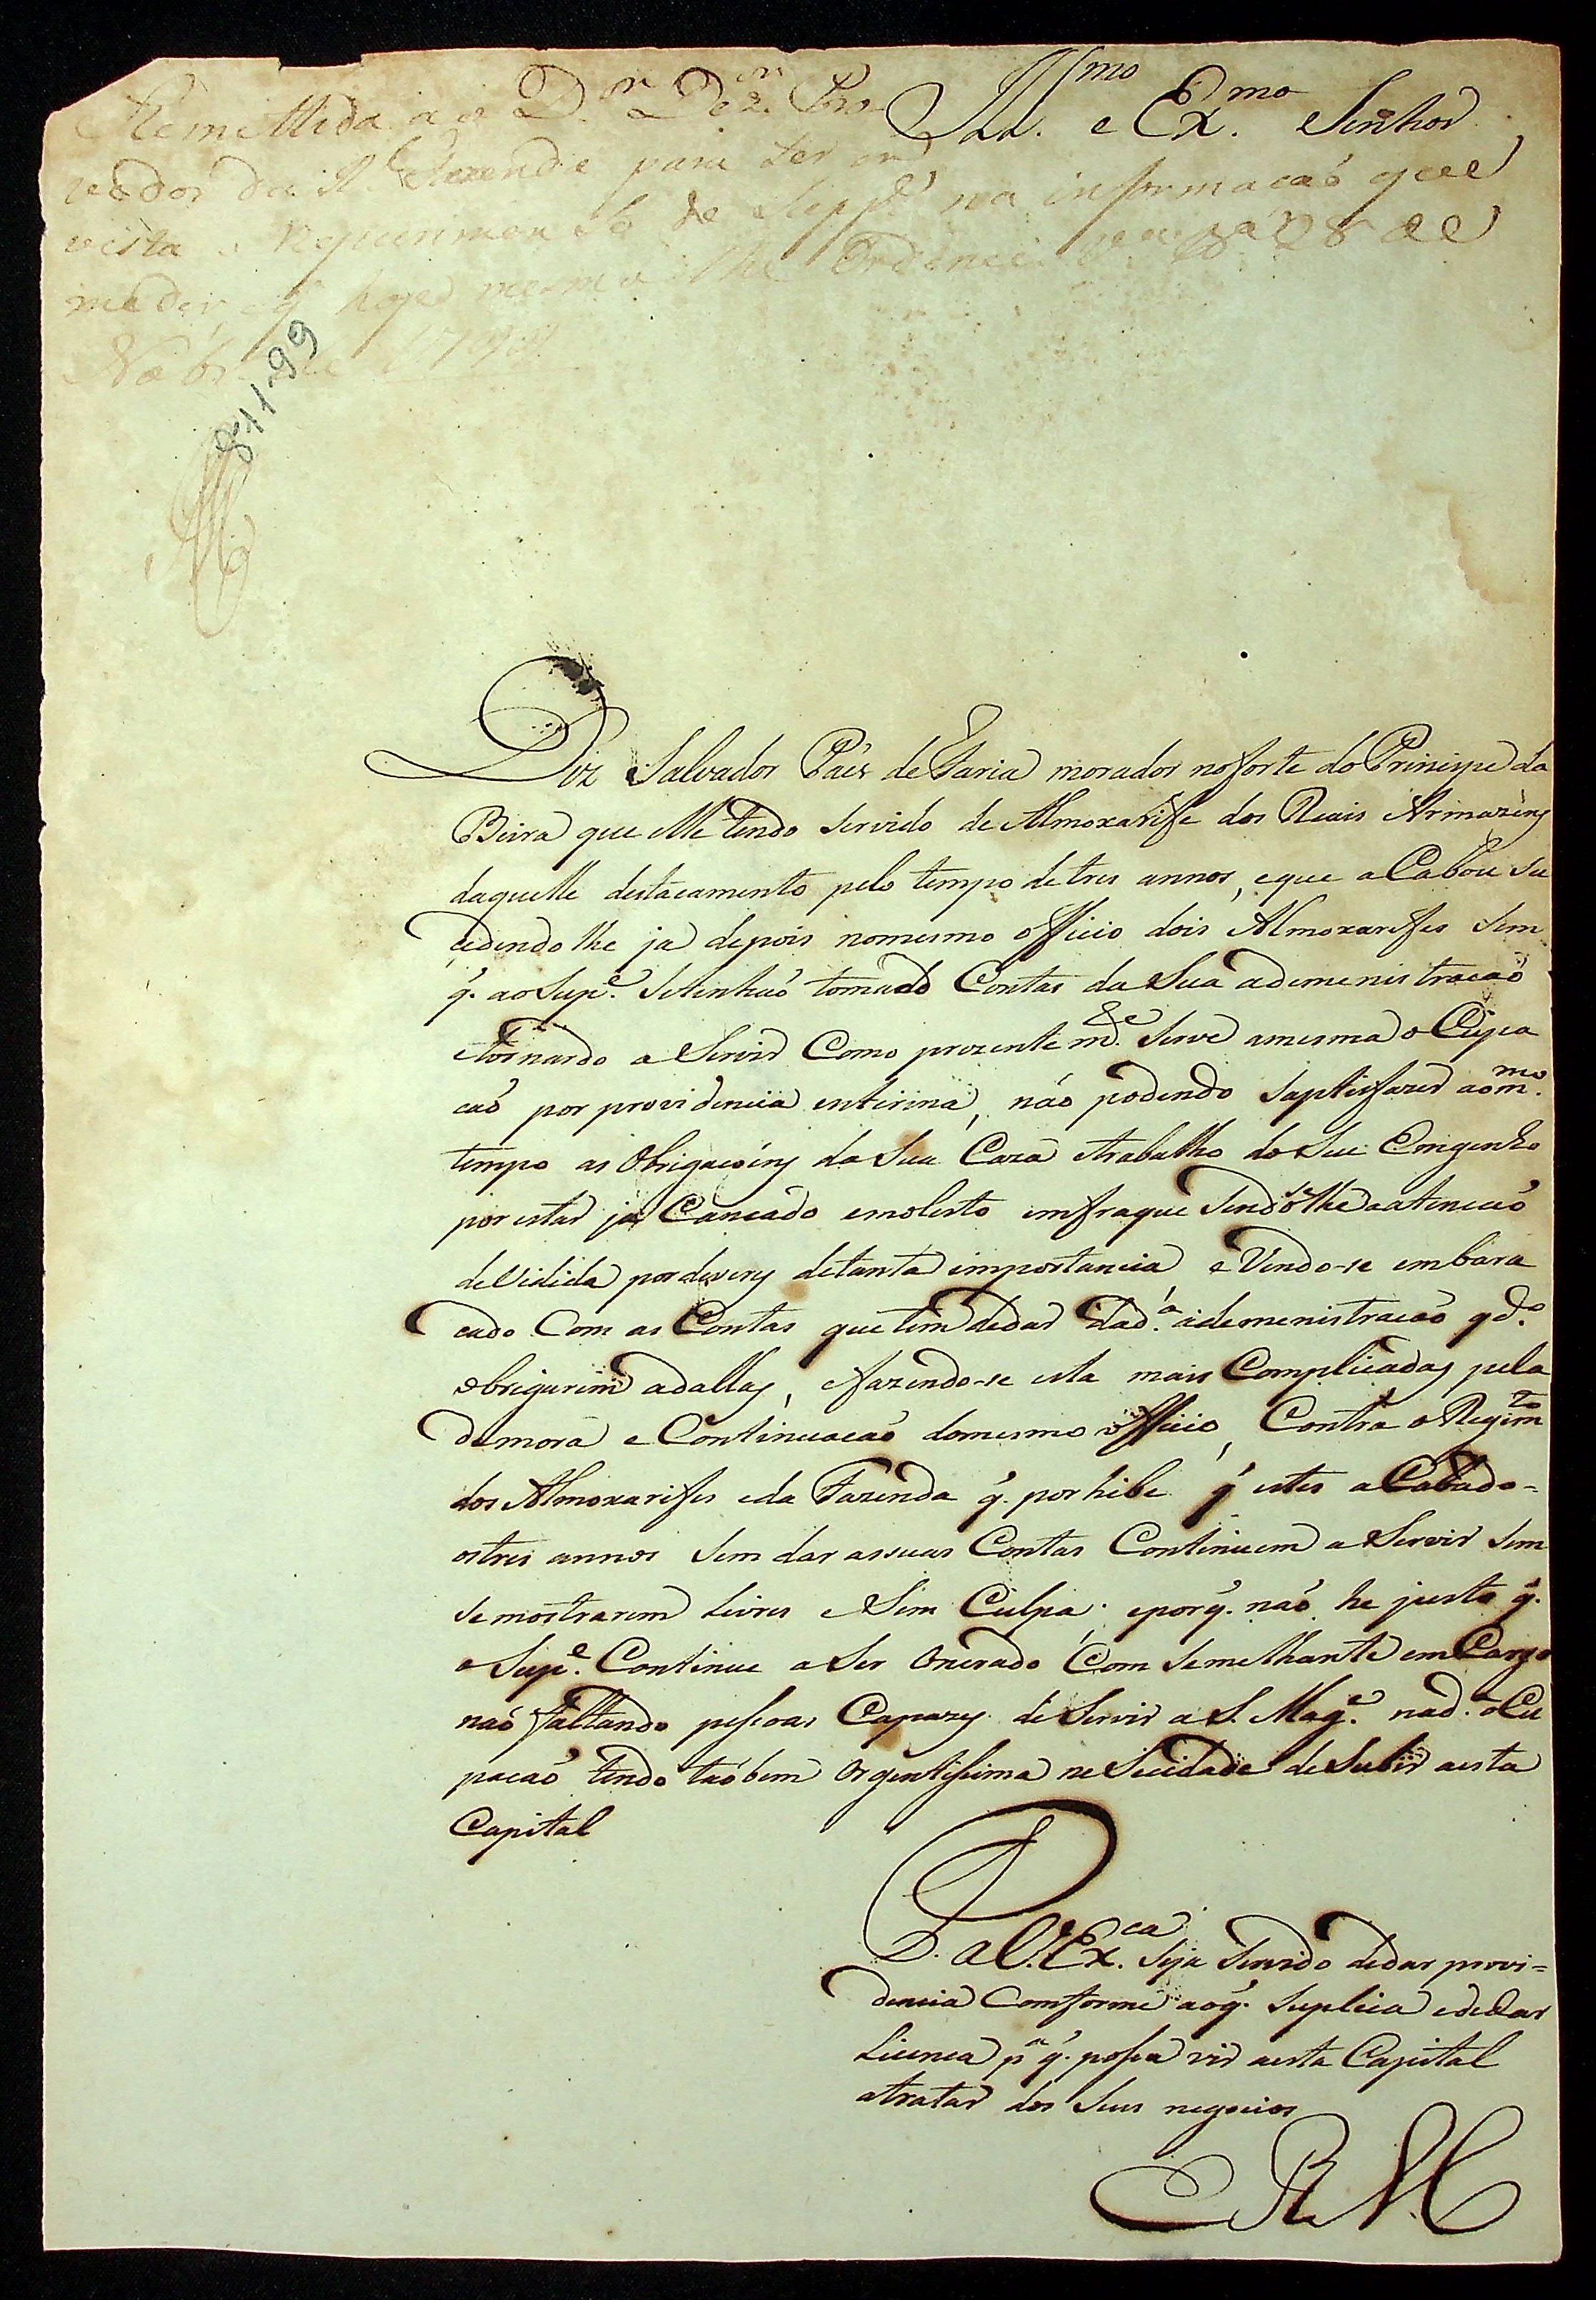 Ill.mo e Ex.mo Senhor
Remettida ao D.or Dez.or Pro
vedor da R. Fazenda para ter em
vista o Requerimento do Supp.e na informacaó que
me der q hoje mesmo lhe Ordenei V.a B.a 28 de
Nobr.o de 179
811-99
Diz Salvador Páes de Faria morador no forte do Principe da
Beira que elle tendo servido de Almoxarife dos Reais Armazéns
daquelle destacamento pelo tempo de tres annos, e que aCabou su
cedendolhe ja depois nomesmo officio dois Almoxarifes sem
q. ao Sup.e setenhaó tomado Contas da Sua ademenistracaó
etornando a Servir Como prezentem.e Serve amesma oCupa
caó por providencia enterina, náo podendo saptisfazer aom.mo
tempo as Obrigacóins da Sua Caza etrabalho do Seu Emgenho
por estar ja Cancado emolesto emfraquesendoselhe aatencaó
deVidida por deveres detanta importancia e Vendo-se embara
cado Com as Contas que tem dedar dad.a ademenistracaó qd.o
obrigarem adallas, efazendo-se esta mais Complicadas pela
demora e Continuacaó domesmo officio, Contra o Regim.to
dos Almoxarifes eda Fazenda q. porhibe q estes aCabado-
ostres annos sem dar assuas Contas Continuem a Servir sem
se mostrarem Livres e Sem Culpa; eporq. naó he justo q.
o Sup.e Continue a Ser Onerado Com Semelhante emCargo
naó faltando pessoas Capazes de Servir a S. Mag.e nad.a oCu
pacaó tendo taóbem Orgentissima neSecidade de Subir aesta
Capital
P. a V. Ex.ca Seja Servido dedar provi-
dencia Comforme aoq. Suplica ededar
Licenca p.a q. possa vir aesta Capital
atratar dos Seus negocios
E R M